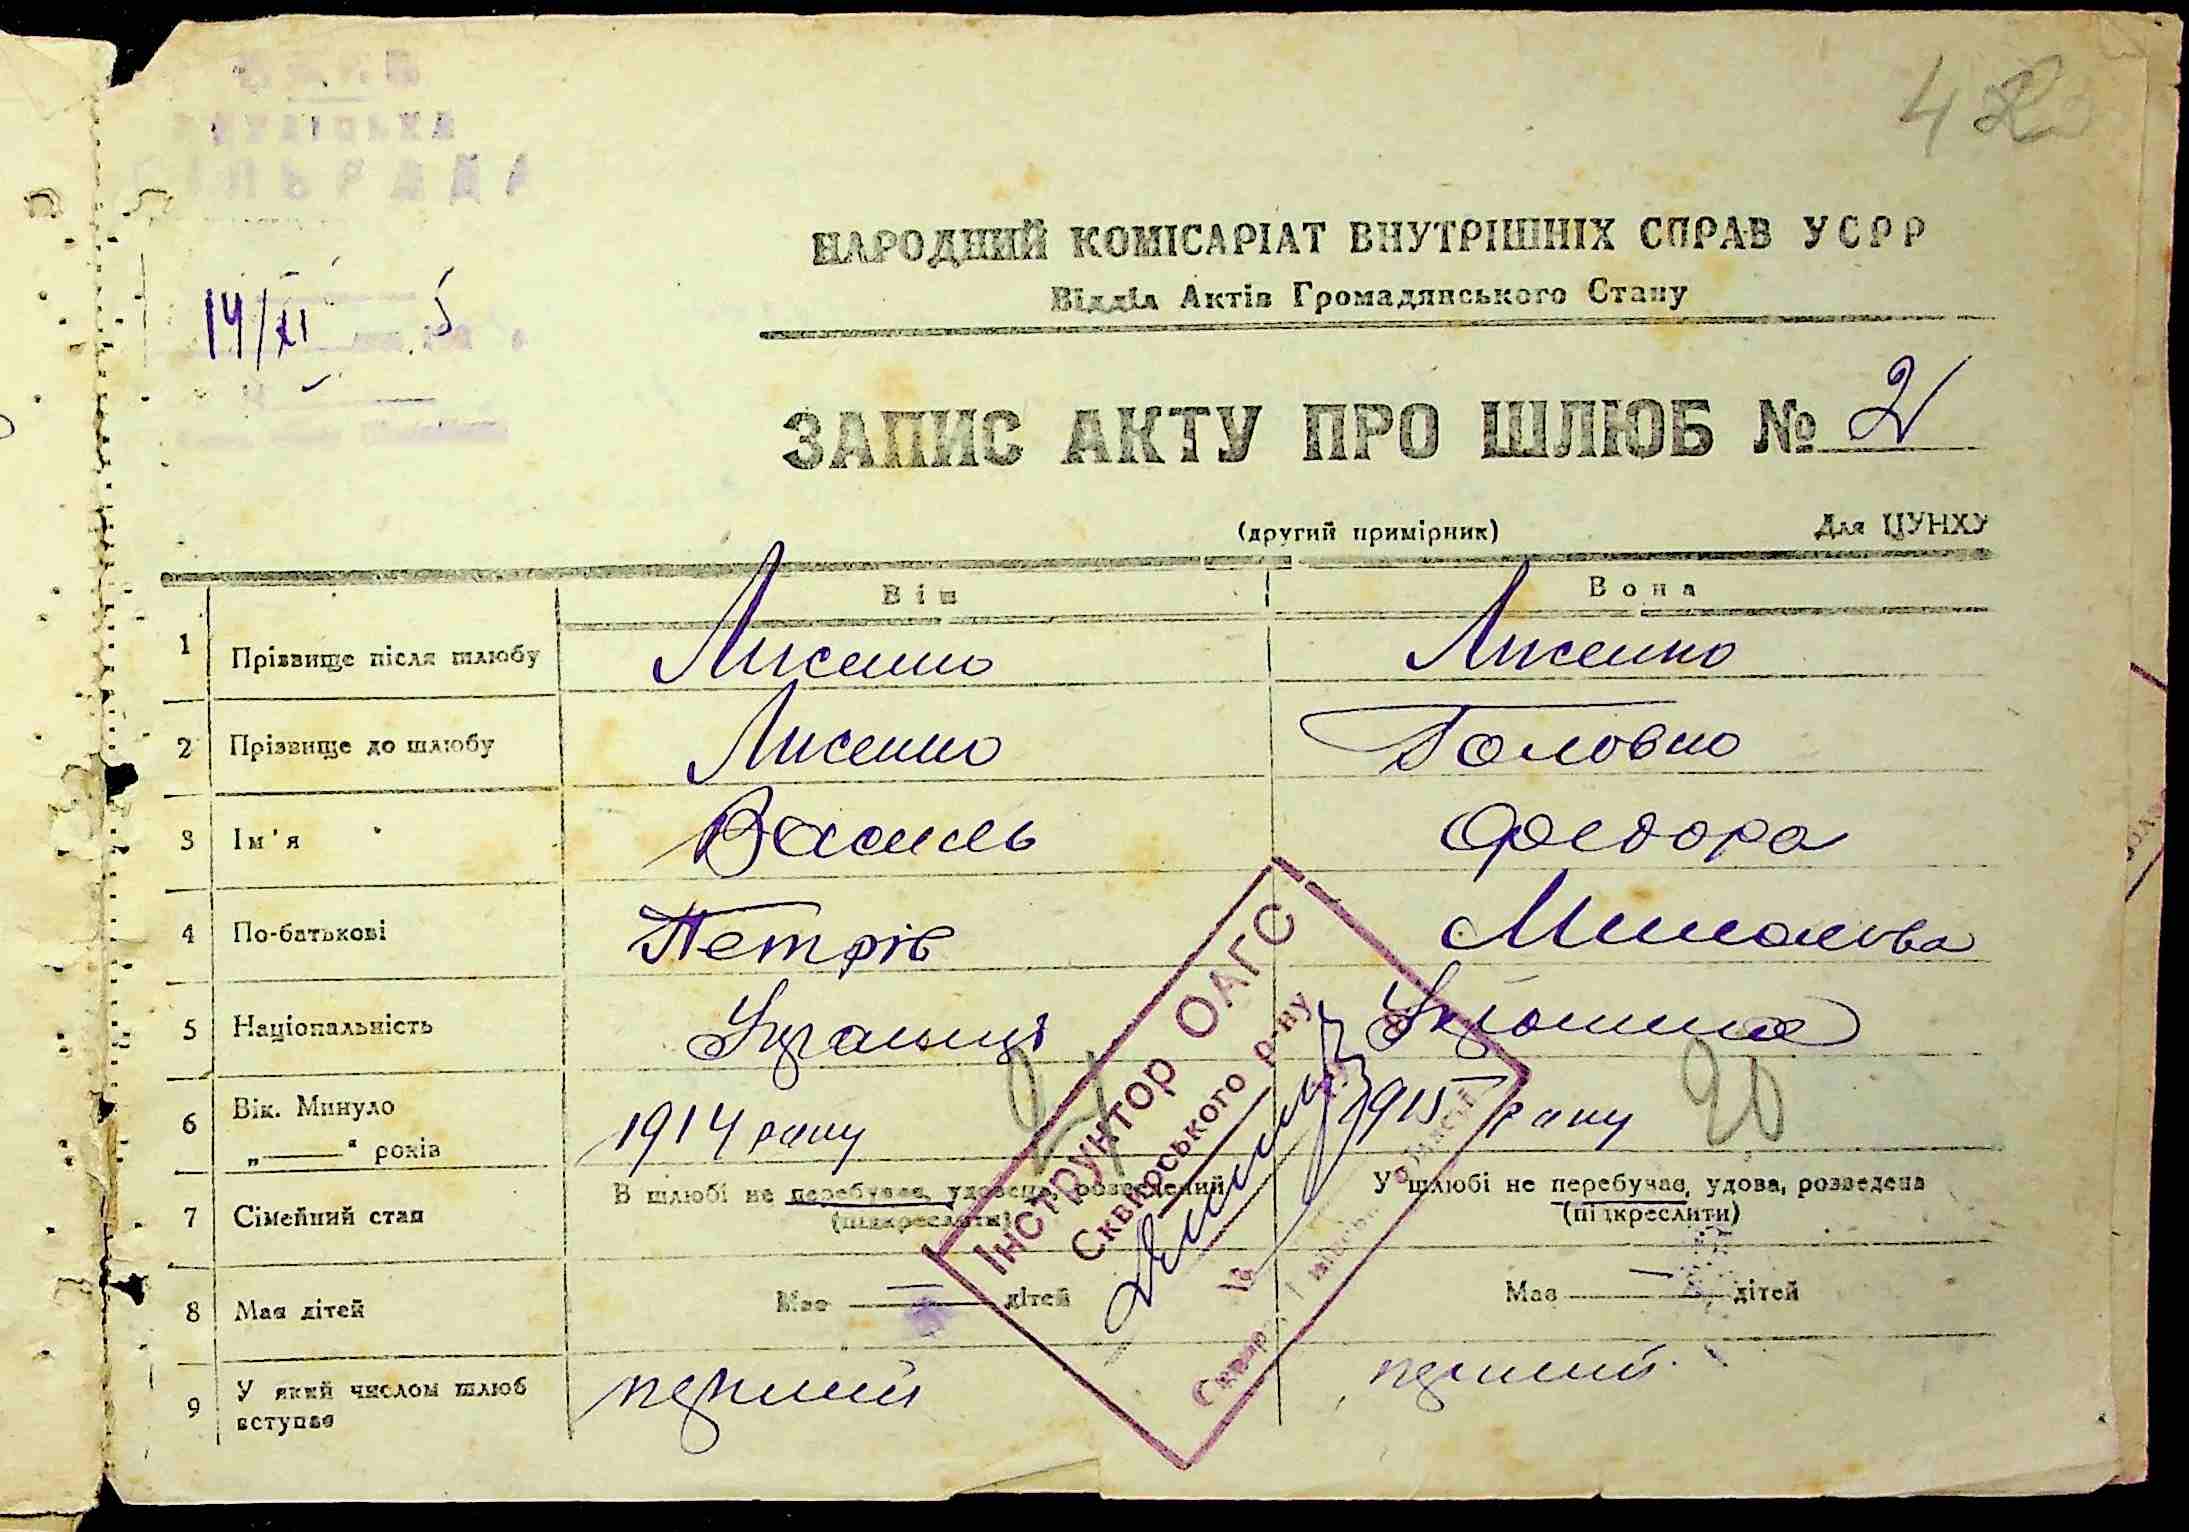 42
СІЛЬРАДА
14/XI 5
НАРОДНИЙ КОМІСАРІАТ ВНУТРІШНІХ СПРАВ УСРР
Відділ Актів Громадянського Стану
ЗАПИС АКТУ ПРО ШЛЮБ № 2
(другий примірник) Для ЦУНХУ
Він Вона
1 Прізвище після шлюбу Лисенко Лисенко
2 Прізвище до шлюбу Лисенко Головко
3 Ім'я Василь Федора
4 По-батькові Петрів Миколова
5 Національність Українці Українка
6 Вік. Минуло „——“ років 1914 року 21 1915 року 20
7 Сімейний стан В шлюбі не перебував, удовець, розведений (підкреслити) У шлюбі не перебуває, удова, розведена (підкреслити)
8 Має дітей Має — дітей Має — дітей
9 У який числом шлюб вступає перший перший
Інструктор ОАГС
Сквирського р-ну